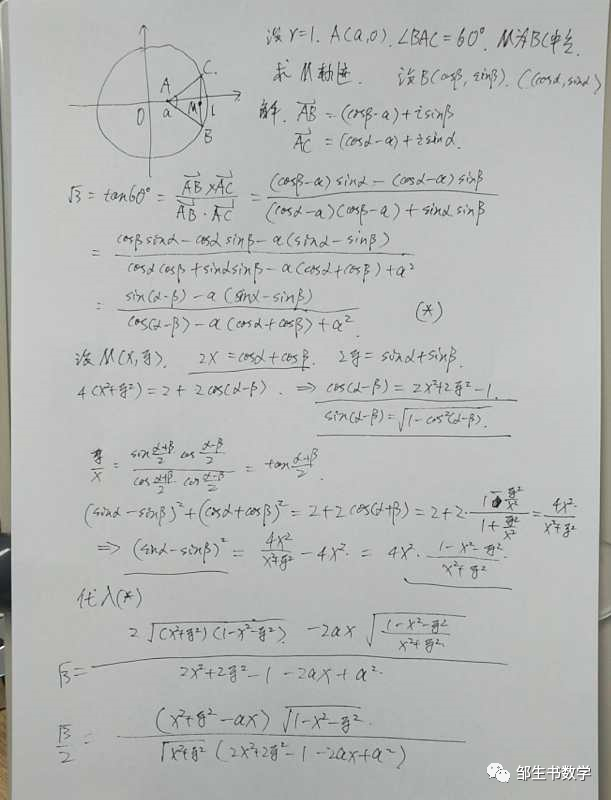 设r=1. A(a,0). ∠BAC=60°. M为BC中点.
求M轨迹. 设B(cosβ, sinβ). C(cosα, sinα)
解. AB→ = (cosβ-a)+isinβ
AC→ = (cosα-a)+isinα.
C
A
O
a
M
1
B
√3 = tan60° = (AB→×AC→)/(AB→·AC→) = ((cosβ-a)sinα-(cosα-a)sinβ)/((cosα-a)(cosβ-a)+sinαsinβ)
= (cosβsinα-cosαsinβ-a(sinα-sinβ))/(cosαcosβ+sinαsinβ-a(cosα+cosβ)+a²)
= (sin(α-β)-a(sinα-sinβ))/(cos(α-β)-a(cosα+cosβ)+a²) (*)
设M(x,y). 2x=cosα+cosβ. 2y=sinα+sinβ.
4(x²+y²)=2+2cos(α-β). ⇒ cos(α-β)=2x²+2y²-1.
sin(α-β)=√(1-cos²(α-β)).
y/x = (sin(α+β)/2 cos(α-β)/2)/(cos(α+β)/2 · cos(α-β)/2) = tan(α+β)/2.
(sinα-sinβ)²+(cosα+cosβ)²=2+2cos(α+β)=2+2·(1-y²/x²)/(1+y²/x²)=4x²/(x²+y²)
⇒ (sinα-sinβ)² = 4x²/(x²+y²) - 4x² = 4x²·(1-x²-y²)/(x²+y²)
代入(*)
√3 = (2√((x²+y²)(1-x²-y²)) -2ax√((1-x²-y²)/(x²+y²)))/(2x²+2y²-1-2ax+a²)
√3/2 = ((x²+y²-ax)√(1-x²-y²))/(√(x²+y²)(2x²+2y²-1-2ax+a²))
邹生书数学